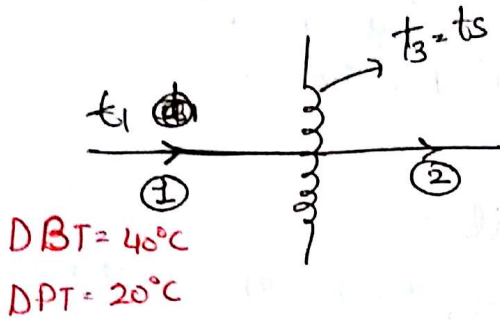 t₃ = ts
t₁
1
2
DBT = 40°C
DPT = 20°C